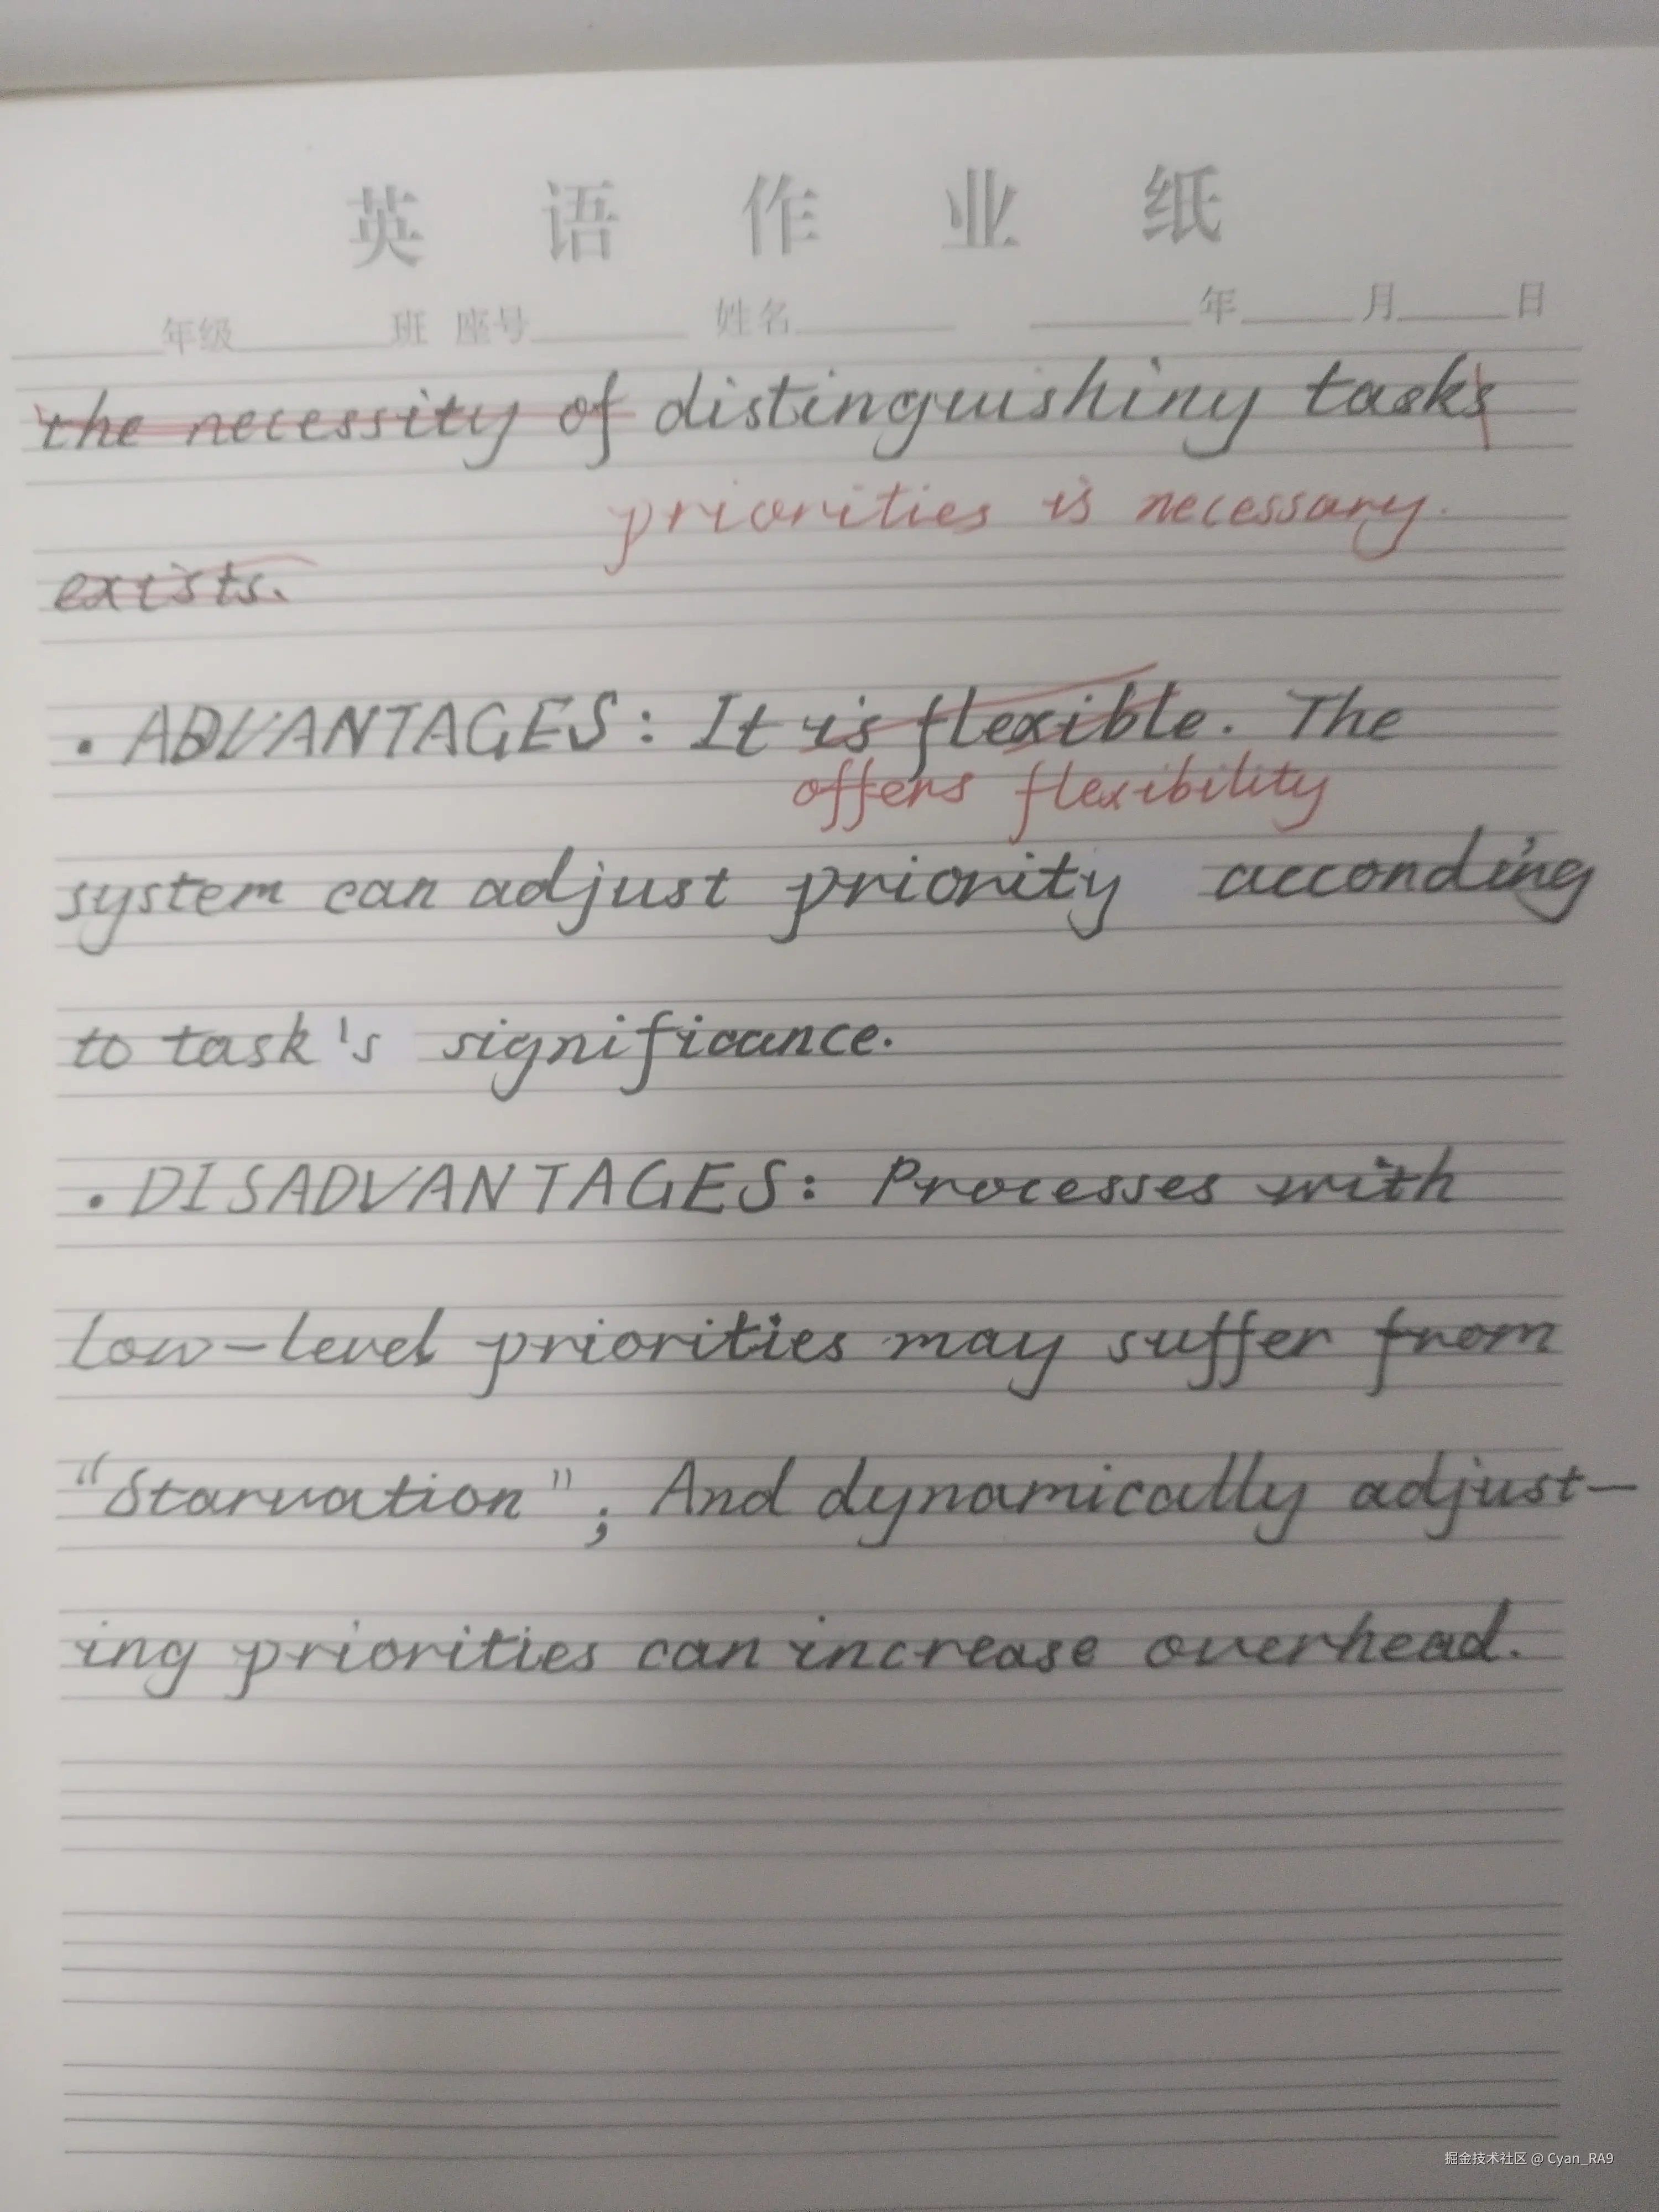 英语作业纸
年级 班 座号 姓名 年 月 日
the necessity of distinguishing tasks
priorities is necessary.
exists.
· ADVANTAGES: It is flexible. The
offers flexibility
system can adjust priority according
to task's significance.
· DISADVANTAGES: Processes with
low-level priorities may suffer from
"Starvation"; And dynamically adjust-
ing priorities can increase overhead.
掘金技术社区 @ Cyan_RA9